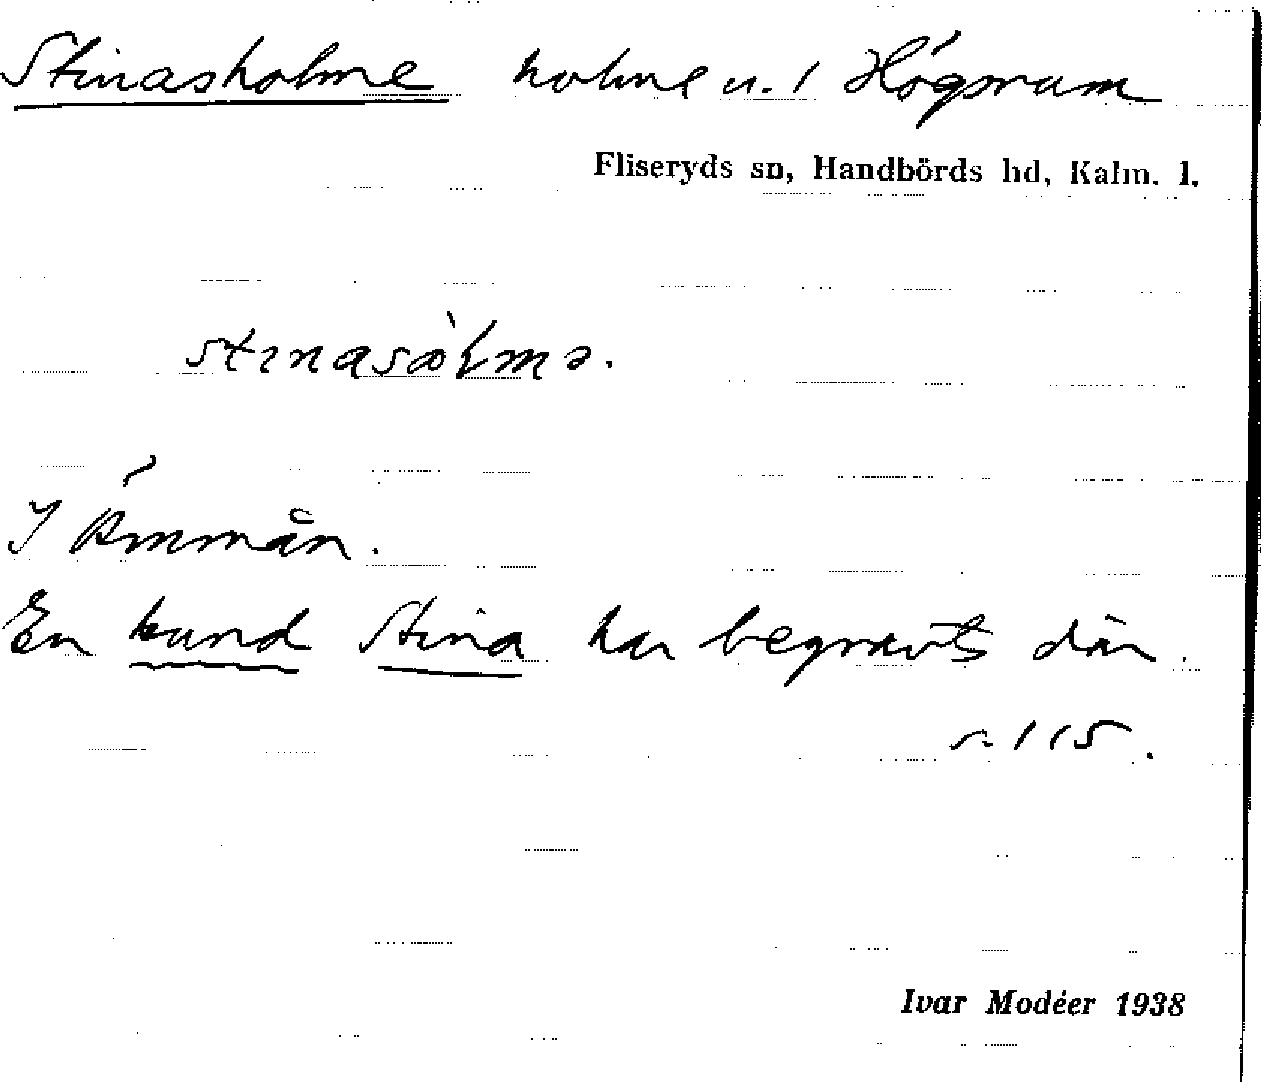 Stinasholme holme u. 1 Högsrum
Fliseryds sn, Handbörds hd, Kalm. l.
I Emmån.
En hund Stina har begravts där.
s. 115.
Ivar Modéer 1938